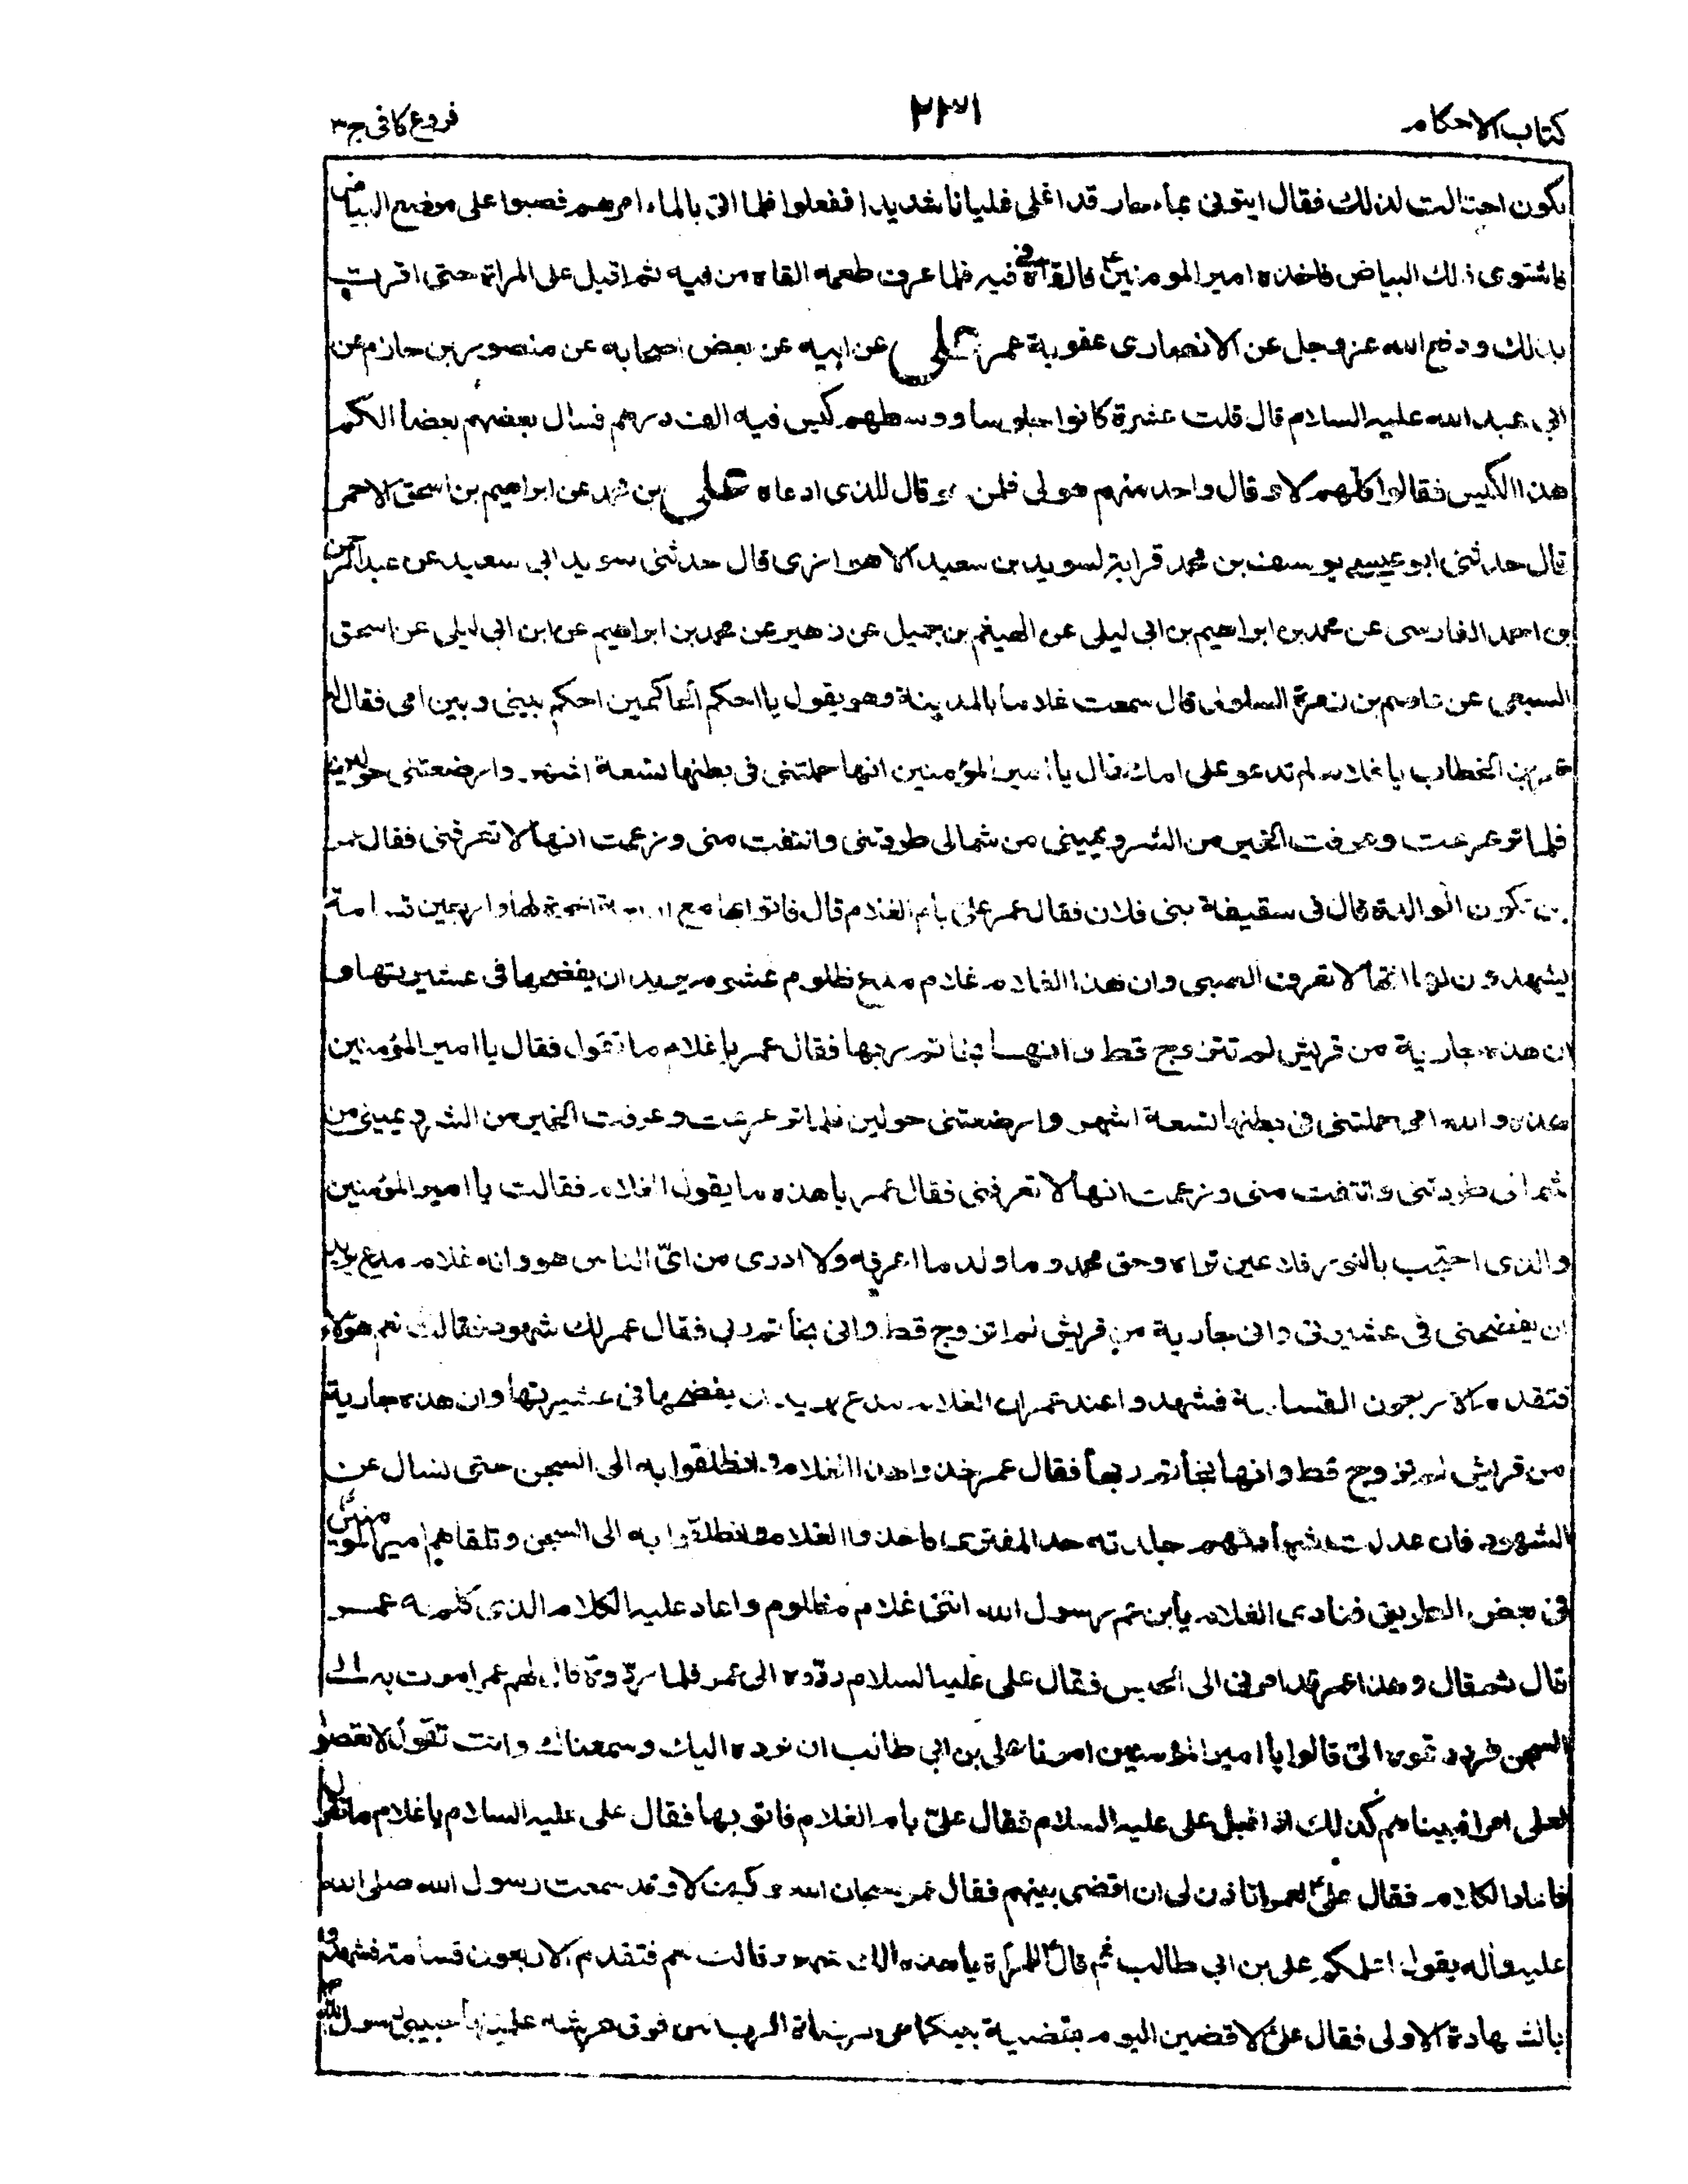 كتاب الاحكام
٢٣١
فروع كافى ج٣
يكون احتالت لذلك فقال ايتونى بماء حار قد اغلى غليانا شديدا ففعلوا فلما اتى بالماء امرهم فصبوا على موضع البياض
فاشتوى ذلك البياض فاخذه امير المومنين ع فالقاه فى فيه فلما عرف طعمه القاه من فيه ثم اقبل على المراة حتى اقرت
بذلك ودفع الله عز وجل عن الانصارى عقوبة عمر على عن ابيه عن بعض اصحابه عن منصور بن حازم عن
ابى عبد الله عليه السلام قال قلت عشرة كانوا جلوسا ووسطهم كيس فيه الف درهم فسال بعضهم بعضا الكم
هذا الكيس فقالوا كلهم لا و قال واحد منهم هو لى فلمن هو قال للذى ادعاه على بن محمد عن ابراهيم بن اسحق الاحمر
قال حدثنى ابو عيسى يوسف بن محمد قرابة لسويد بن سعيد الاهوازى قال حدثنى سويد ابى سعيد عن عبد الرحمن
بن احمد الفارسى عن محمد بن ابراهيم بن ابى ليلى عن الهيثم بن جميل عن زهير عن محمد بن ابراهيم عن ابن ابى ليلى عن اسحق
السبيعى عن عاصم بن ضمرة السلولى قال سمعت غلاما بالمدينة وهو يقول يا احكم الحاكمين احكم بينى وبين امى فقال له
عمر بن الخطاب يا غلام لم تدعو على امك فقال يا امير المؤمنين انها حملتنى فى بطنها تسعة اشهر وارضعتنى حولين
فلما ترعرعت وعرفت الخير من الشر ويمينى من شمالى طردتنى وانتفت منى وزعمت انها لا تعرفنى فقال عمر
اين تكون الوالدة قال فى سقيفة بنى فلان فقال عمر على بام الغلام قال فاتوا بها مع اربعة اخوة لها واربعين قسامة
يشهدون لها انها لا تعرف الصبى وان هذا الغلام غلام مدع ظلوم غشوم يريد ان يفضحها فى عشيرتها و
ان هذه جارية من قريش لم تتزوج قط وانها بخاتم ربها فقال عمر يا غلام ما تقول فقال يا امير المؤمنين
هذه والله امى حملتنى فى بطنها تسعة اشهر وارضعتنى حولين فلما ترعرعت وعرفت الخير من الشر ويمينى من
شمالى طردتنى وانتفت منى وزعمت انها لا تعرفنى فقال عمر يا هذه ما يقول الغلام فقالت يا امير المؤمنين
والذى احتجب بالنور فلا عين تراه وحق محمد وما ولد ما اعرفه ولا ادرى من اىّ الناس هو وانه غلام مدع يريد
ان يفضحنى فى عشيرتى وانى جارية من قريش لم اتزوج قط وانى بخاتم ربى فقال عمر لك شهود فقالت نعم هؤلاء
فتقدم الاربعون القسامة فشهدوا عند عمر ان الغلام مدع يريد ان يفضحها فى عشيرتها وان هذه جارية
من قريش لم تزوج قط وانها بخاتم ربها فقال عمر خذوا هذا الغلام وانطلقوا به الى السجن حتى نسال عن
الشهود فان عدلت شهادتهم جلدته حد المفترى فاخذوا الغلام وانطلقوا به الى السجن وتلقاهم امير المومنين ع
فى بعض الطريق فنادى الغلام يا بن عم رسول الله اننى غلام مظلوم واعاد عليه الكلام الذى كلم به عمر
قال ثم قال وهذا عمر قد امر بى الى الحبس فقال على عليه السلام ردّوه الى عمر فلما ردّوه قال لهم عمر امرت به الى
السجن فرددتموه الىّ قالوا يا امير المؤمنين امرنا على بن ابى طالب ان نرده اليك وسمعناك وانت تقول لا تعصوا
لعلى امرا فبينا هم كذلك اذ اقبل على عليه السلام فقال علىّ بام الغلام فاتو بها فقال على عليه السلام يا غلام ما تقول
فاعاد الكلام فقال على ع لعمر اتاذن لى ان اقضى بينهم فقال عمر سبحان الله وكيف لا وقد سمعت رسول الله صلى الله
عليه وآله يقول اعلمكم على بن ابى طالب ثم قال للمراة يا هذه الك شهود قالت نعم فتقدم الاربعون قسامة فشهدوا
بالشهادة الاولى فقال على ع لاقضين اليوم بقضية بينكما هى مرضاة الرب من فوق عرشه علمنيها حبيبى رسول الله